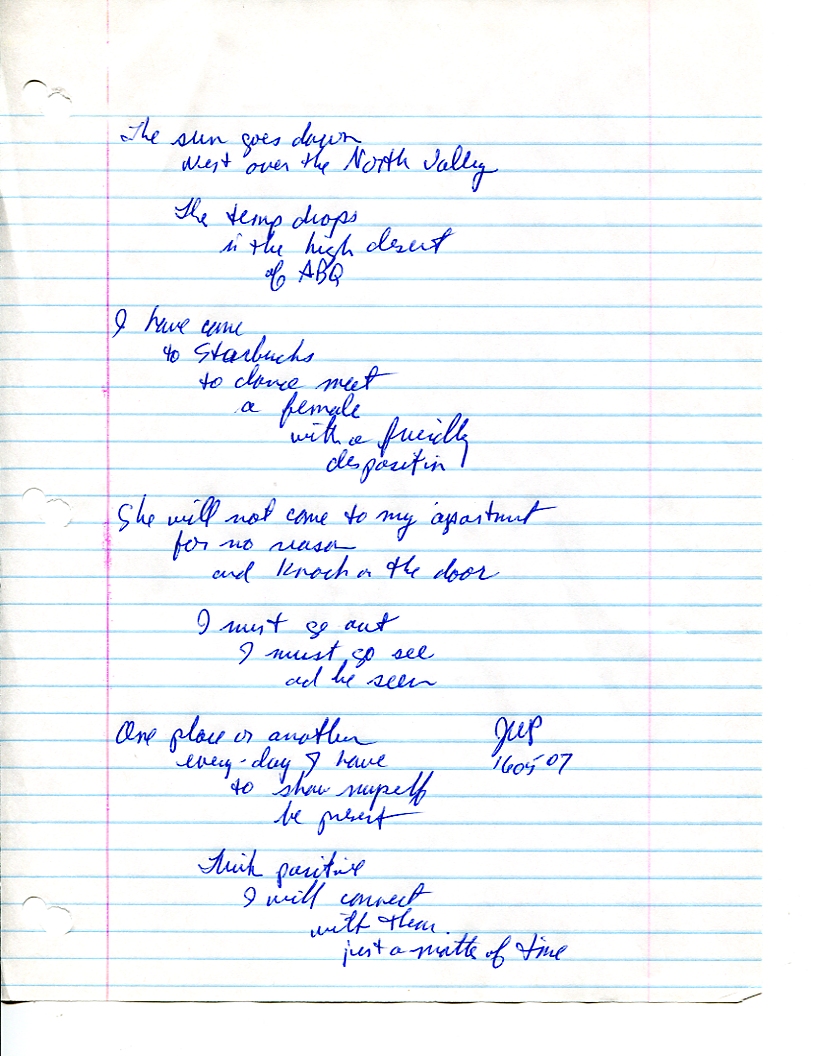 The sun goes down
West over the North Valley
The temp drops
in the high desert
of ABQ
I have come
to Starbucks
to chance meet
a female
with a friendly
disposition
She will not come to my apartment
for no reason
and knock on the door
I must go out
I must go see
and be seen
One place or another
every-day I have
to show myself
be present
JWP
160507
Think positive
I will connect
with them.
just a matter of time